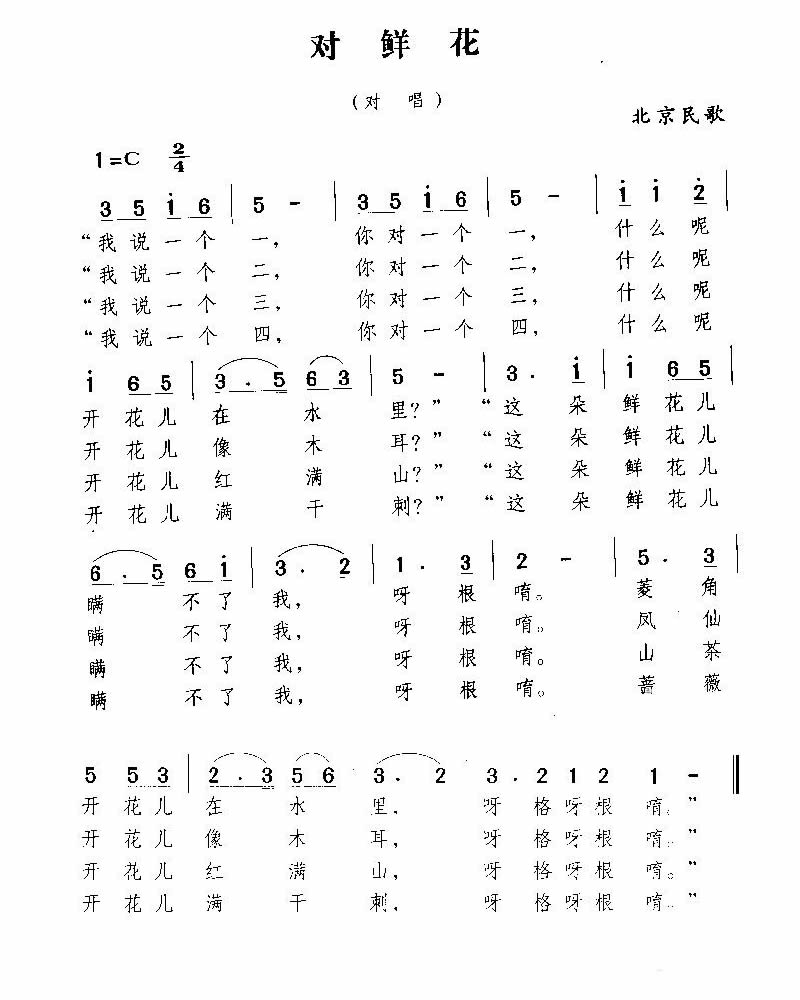 对 鲜 花
(对 唱)
北京民歌
1=C 2/4
3 5 i 6 | 5 - | 3 5 i 6 | 5 - | i i 2̇ |
“我 说 一 个 一, 你 对 一 个 一, 什 么 呢
“我 说 一 个 二, 你 对 一 个 二, 什 么 呢
“我 说 一 个 三, 你 对 一 个 三, 什 么 呢
“我 说 一 个 四, 你 对 一 个 四, 什 么 呢
i 6 5 | 3 . 5 6 3 | 5 - | 3 . i | i 6 5 |
开 花 儿 在 水 里?” “这 朵 鲜 花 儿
开 花 儿 像 木 耳?” “这 朵 鲜 花 儿
开 花 儿 红 满 山?” “这 朵 鲜 花 儿
开 花 儿 满 干 刺?” “这 朵 鲜 花 儿
6 . 5 6 i | 3 . 2 | 1 . 3 | 2 - | 5 . 3 |
瞒 不 了 我, 呀 根 唷。 菱 角
瞒 不 了 我, 呀 根 唷。 凤 仙
瞒 不 了 我, 呀 根 唷。 山 茶
瞒 不 了 我, 呀 根 唷。 蔷 薇
5 5 3 | 2 . 3 5 6 | 3 . 2 | 3 . 2 1 2 | 1 - ‖
开 花 儿 在 水 里, 呀 格 呀 根 唷。”
开 花 儿 像 木 耳, 呀 格 呀 根 唷。”
开 花 儿 红 满 山, 呀 格 呀 根 唷。”
开 花 儿 满 干 刺, 呀 格 呀 根 唷。”